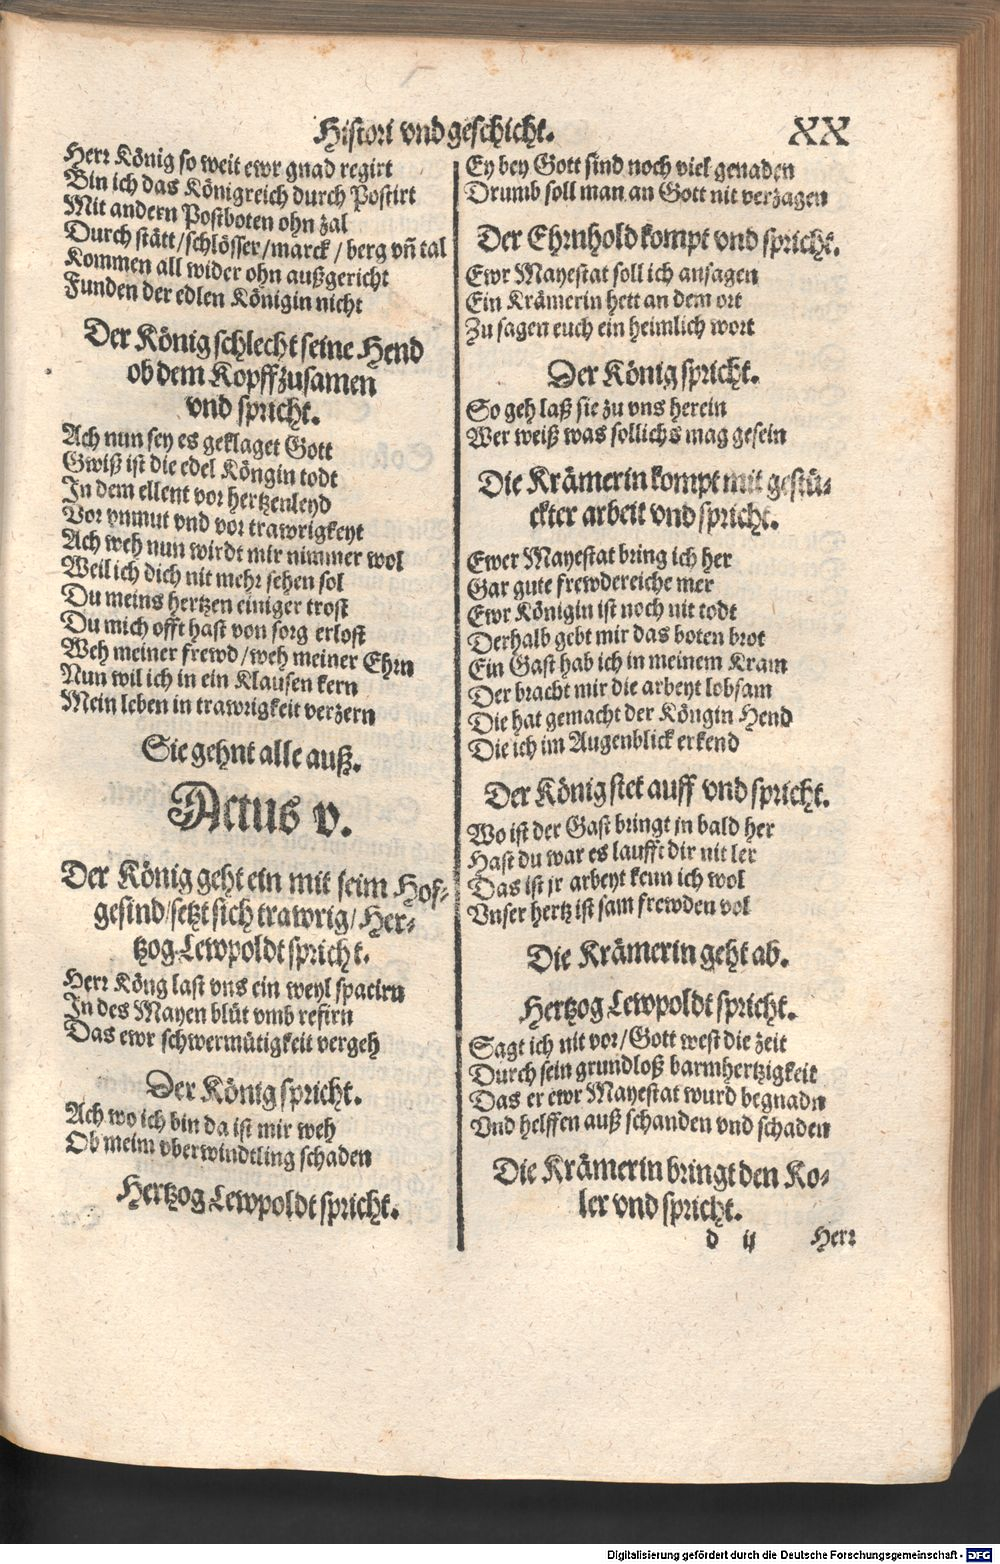 Histori vnd geschicht. XX
Herr König so weit ewr gnad regirt
Bin ich das Königreich durch Postirt
Mit andern Postboten ohn zal
Durch stätt/schlösser/marck/berg vñ tal
Kommen all wider ohn außgericht
Funden der edlen Königin nicht
Der König schlecht seine Hend
ob dem Kopff zusamen
vnd spricht.
Ach nun sey es geklaget Gott
Gwiß ist die edel Köngin todt
In dem ellent vor hertzenleyd
Vor vnmut vnd vor trawrigkeyt
Ach weh nun wirdt mir nimmer wol
Weil ich dich nit mehr sehen sol
Du meins hertzen einiger trost
Du mich offt hast von sorg erlost
Weh meiner frewd/weh meiner Ehrn
Nun wil ich in ein Klausen kern
Mein leben in trawrigkeit verzern
Sie gehnt alle auß.
Actus v.
Der König geht ein mit seim Hof-
gesind/setzt sich trawrig/Her-
tzog Lewpoldt spricht.
Herr Köng last vns ein weyl spacirn
In des Mayen blüt vmb refirn
Das ewr schwermütigkeit vergeh
Der König spricht.
Ach wo ich bin da ist mir weh
Ob meim vberwindtling schaden
Hertzog Lewpoldt spricht.
Ey bey Gott sind noch viel genaden
Drumb soll man an Gott nit verzagen
Der Ehrnhold kompt vnd spricht.
Ewr Mayestat soll ich ansagen
Ein Krämerin hett an dem ort
Zu sagen euch ein heimlich wort
Der König spricht.
So geh laß sie zu vns herein
Wer weiß was sollichs mag gesein
Die Krämerin kompt mit gestü-
ckter arbeit vnd spricht.
Ewer Mayestat bring ich her
Gar gute frewdereiche mer
Ewr Königin ist noch nit todt
Derhalb gebt mir das boten brot
Ein Gast hab ich in meinem Kram
Der bracht mir die arbeyt lobsam
Die hat gemacht der Köngin Hend
Die ich im Augenblick erkend
Der König stet auff vnd spricht.
Wo ist der Gast bringt jn bald her
Hast du war es laufft dir nit ler
Das ist jr arbeyt kenn ich wol
Vnser hertz ist sam frewden vol
Die Krämerin geht ab.
Hertzog Lewpoldt spricht.
Sagt ich nit vor/Gott west die zeit
Durch sein grundloß barmhertzigkeit
Das er ewr Mayestat wurd begnadn
Vnd helffen auß schanden vnd schaden
Die Krämerin bringt den Ko-
ler vnd spricht.
d ij Herr
Digitalisierung gefördert durch die Deutsche Forschungsgemeinschaft - DFG